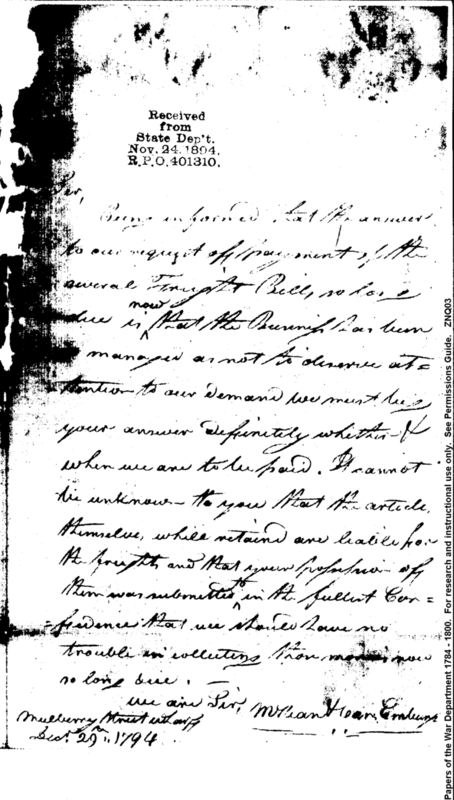 Received
from
State Dep't.
Nov. 24. 1894.
R.P.O. 401310.
Sir,
Being informed that the answer
to our request off payment of the
several Freight Bills so long
now
due is that the Business has been
managed as not to deserve at=
tention to our demand we must beg
your answer definitely whether &
when we are to be paid. It cannot
be unknown to you that the article
themselves while retained are liable for
the freight and that your possession off
them was submitted to in the fullest Con=
=fidence that we should have no
trouble in collecting those monies now
so long due. —
we are Sir,
Mulberry Street wharff
Decr. 29th. 1794
Papers of the War Department 1784 - 1800. For research and instructional use only. See Permissions Guide. ZNQ03